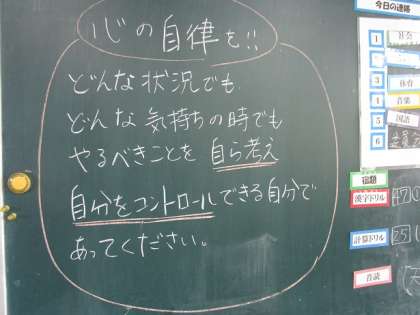 心の自律を!!
どんな状況でも
どんな気持ちの時でも
やるべきことを自ら考え
自分をコントロールできる自分で
あってください。
今日の連絡
1 社会
3 体育
4 音楽
5 国語
6
宿題
漢字ドリル
計算ドリル 25
音読